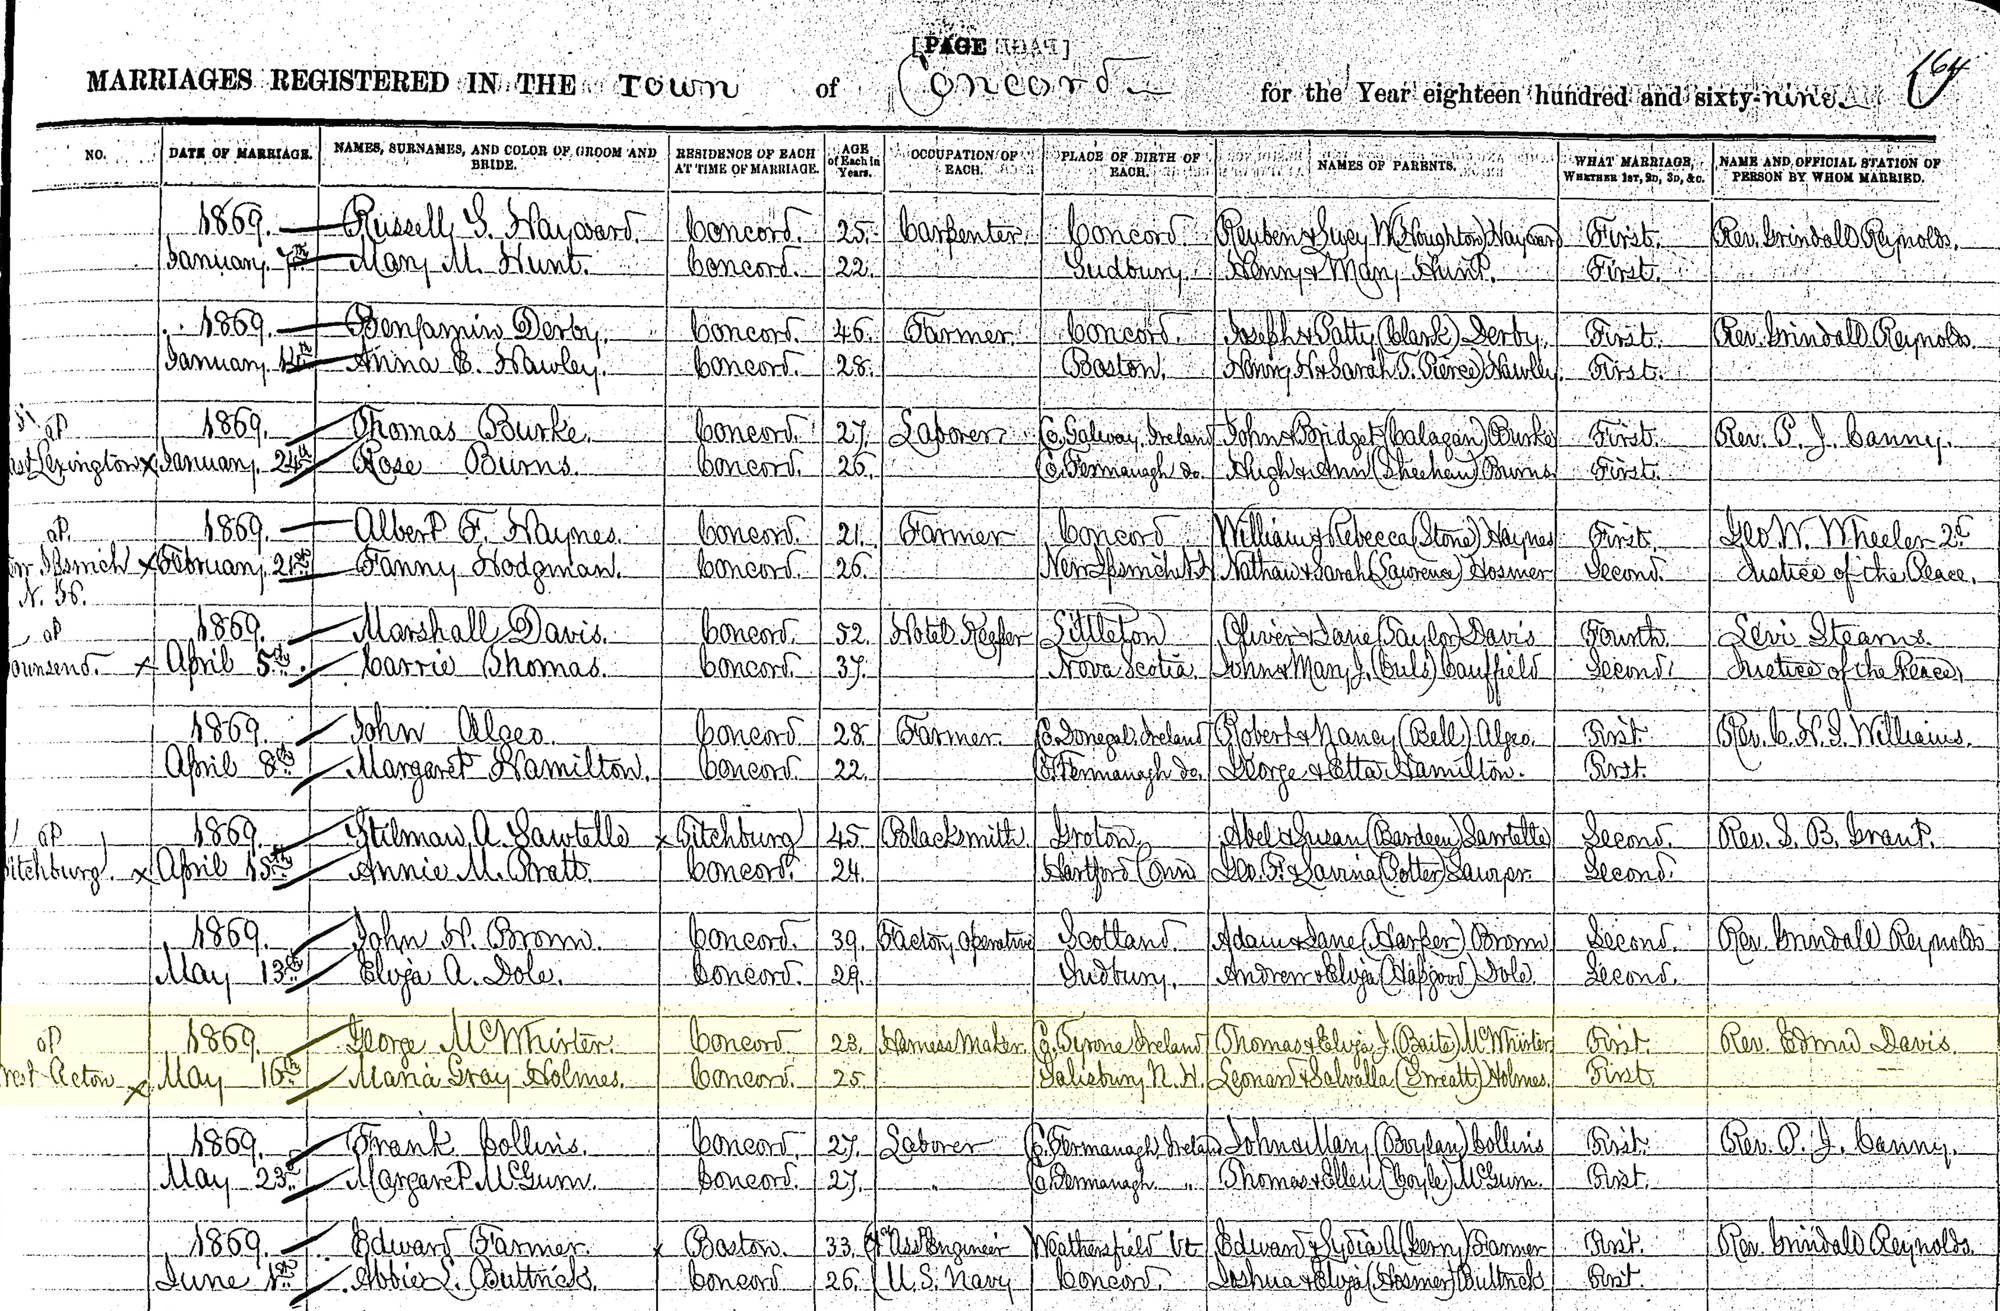 [PAGE ]
MARRIAGES REGISTERED IN THE Town of Concord for the Year eighteen hundred and sixty-nine. 64
NO. DATE OF MARRIAGE. NAMES, SURNAMES, AND COLOR OF GROOM AND BRIDE. RESIDENCE OF EACH AT TIME OF MARRIAGE. AGE of Each in Years. OCCUPATION OF EACH. PLACE OF BIRTH OF EACH. NAMES OF PARENTS. WHAT MARRIAGE, WHETHER 1ST, 2D, 3D, &C. NAME AND OFFICIAL STATION OF PERSON BY WHOM MARRIED.
1869. Russell S. Hayward. Concord. 25. Carpenter. Concord. Reuben & Lucy W. (Houghton) Hayward First. Rev. Grindall Reynolds.
January 7th Mary M. Hunt. Concord. 22. Sudbury. Henry & Mary Hunt. First.
1869. Benjamin Derby. Concord. 46. Farmer. Concord. Joseph & Patty (Clark) Derby. First. Rev. Grindall Reynolds.
January 14th Anna E. Hawley. Concord. 28. Boston. Henry H & Sarah T. (Pierce) Hawley. First.
at 1869. Thomas Burke. Concord. 27. Laborer. Co. Galway, Ireland John & Bridget (Calagan) Burke First. Rev. P. J. Canny.
ast Lexington x January 24th Rose Burns. Concord. 26. Co. Fermanagh do. Hugh & Ann (Sheehan) Burns First.
at 1869. Albert F. Haynes. Concord. 21. Farmer Concord William & Rebecca (Stone) Haynes First. Geo W. Wheeler 2d
Ipswich x February 21st Fanny Hodgman. Concord. 26. New Ipswich N.H Nathan & Sarah (Lawrence) Hosmer Second. Justice of the Peace.
N. H.
at 1869. Marshall Davis. Concord. 52. Hotel Keeper Littleton Oliver & Jane (Taylor) Davis Fourth. Levi Stearns.
ownsend. x April 5th Carrie Thomas. Concord. 37. Nova Scotia. John & Mary J. Cauffield Second. Justice of the Peace
1869. John Algeo. Concord 28. Farmer. Co. Donegal, Ireland Robert & Nancy (Bell) Algeo. First. Rev. C. H. S. Williams.
April 8th Margaret Hamilton. Concord. 22. Co. Fermanagh do. George & Etta Hamilton. First.
at 1869. Stilman A. Sawtelle x Fitchburg 45. Blacksmith. Groton. Abel & Susan (Bardeen) Sawtelle Second. Rev. S. B. Grant.
Fitchburg. x April 15th Annie M. Pratt. Concord. 24. Hartford Conn Geo. P. & Lavinia (Potter) Second.
1869. John W. Brown. Concord. 39. Factory Operative Scotland. Adam & Jane (Harper) Brown Second. Rev. Grindall Reynolds
May 13th Eliza A. Dole. Concord. 29. Sudbury. Andrew & Eliza (Hapgood) Dole. Second.
at 1869. George McWhirter. Concord 23. Harness Maker. Co. Tyrone Ireland Thomas & Eliza J. (Baite) McWhirter First. Rev. Edmd Davis.
West Acton x May 16th Maria Gray Holmes. Concord. 25. Salisbury N.H. Leonard & Salvalla (Sweatt) Holmes. First. "
1869. Frank Collins. Concord. 27. Laborer Co. Fermanagh Ireland John & Mary (Boylan) Collins First. Rev. P. J. Canny.
May 23d Margaret McGurn. Concord. 27. " Co. Fermanagh " Thomas & Ellen (Coyle) McGurn. First.
1869. Edward Farmer. x Boston. 33. Asst Engineer Weathersfield Vt. Edward & Lydia A (Gerry) Farmer First. Rev. Grindall Reynolds.
June 1st Abbie L. Buttrick. Concord. 26. U.S. Navy Concord. Joshua & Eliza (Hosmer) Buttrick First.